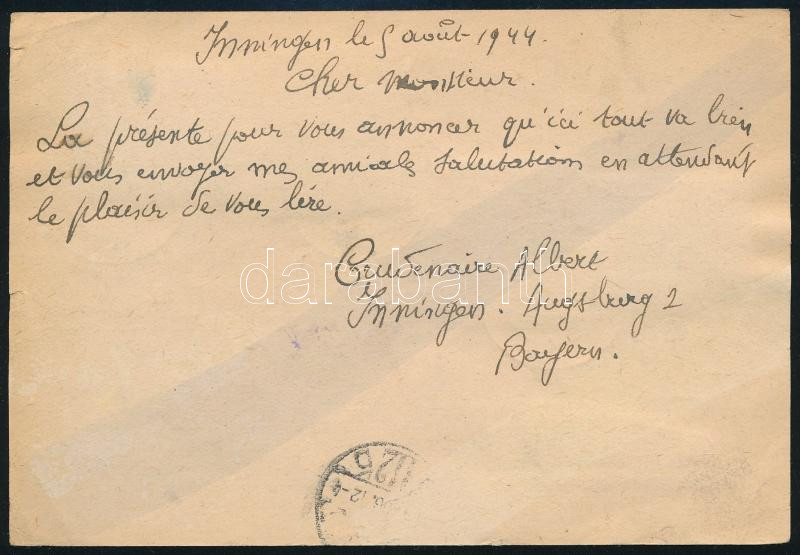 Inningen le 5 août 1944.
Cher Monsieur.
La présente pour vous annoncer qu'ici tout va bien
et vous envoyer mes amicale salutations en attendant
le plaisir de vous lire.
darabanth
Crudenaire Albert
Inningen. Augsburg 2
Bayern.